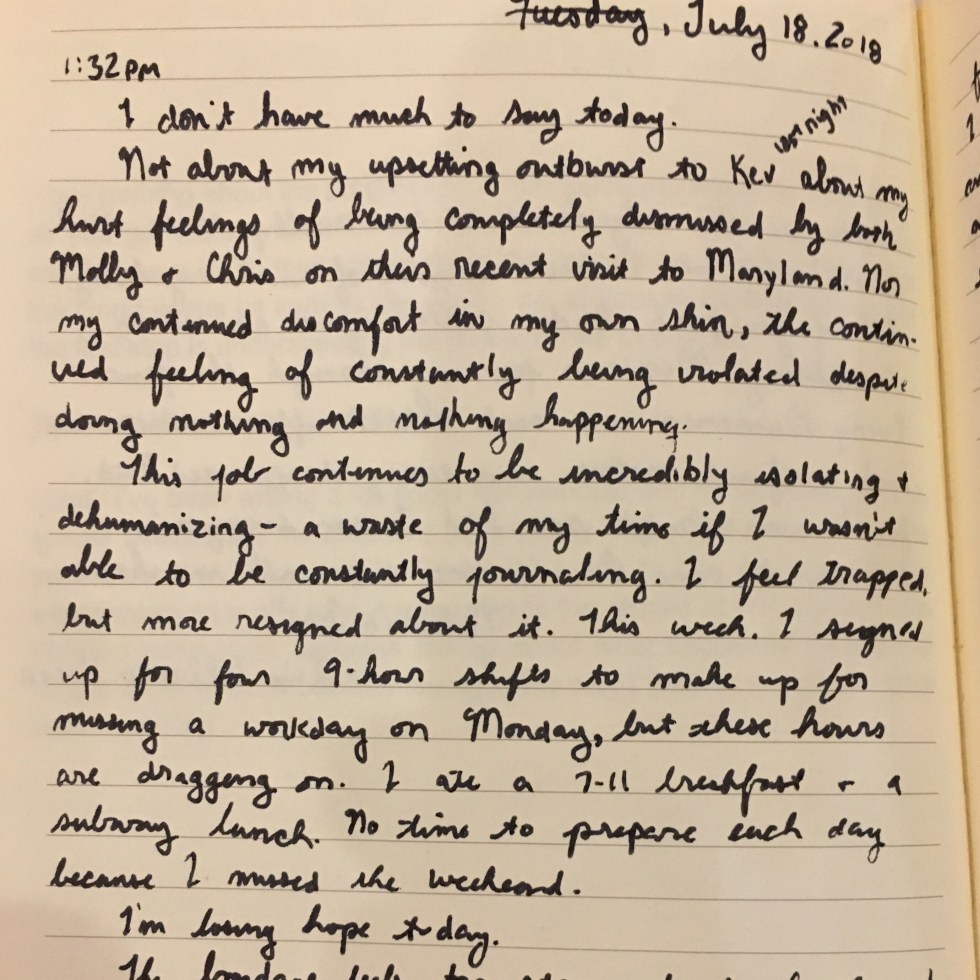 Tuesday, July 18. 2018
1:32PM
I don't have much to say today.
last night
Not about my upsetting outburst to Kev about my
hurt feelings of being completely dismissed by both
Molly & Chris on their recent visit to Maryland. Nor
my continued discomfort in my own skin, the contin-
ued feeling of constantly being violated despite
doing nothing and nothing happening.
This job continues to be incredibly isolating &
dehumanizing - a waste of my time if I wasn't
able to be constantly journaling. I feel trapped,
but more resigned about it. This week. I signed
up for four 9-hour shifts to make up for
missing a workday on Monday, but these hours
are dragging on. I ate a 7-11 breakfast & a
subway lunch. No time to prepare each day
because I missed the weekend.
I'm losing hope today.
The